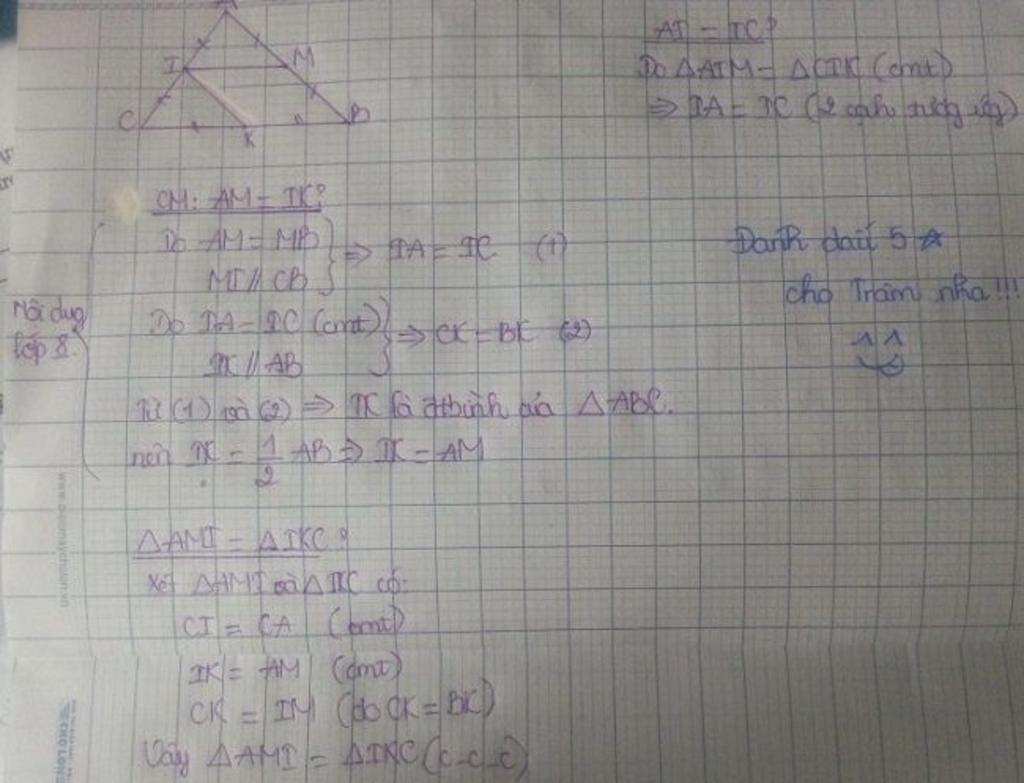 A
I M
C K B
AI = IC?
Do ΔAIM = ΔCIK (cmt)
⇒ IA = IC (2 cạnh tương ứng)
CM: AM = IK?
Do AM = MB
MI // CB } ⇒ IA = IC (1)
Do IA = IC (cmt)
IK // AB } ⇒ CK = BK (2)
Từ (1) và (2) ⇒ IK là đtbình của ΔABC.
nên IK = 1/2 AB ⇒ IK = AM
Nội dung
lớp 8.
Đánh dấu 5 ☆
cho Trâm nha!!!
ΔAMI = ΔIKC?
Xét ΔAMI và ΔIKC có:
CI = CA (cmt)
IK = AM (cmt)
CK = IM (do CK = BK)
Vậy ΔAMI = ΔIKC (c-c-c)